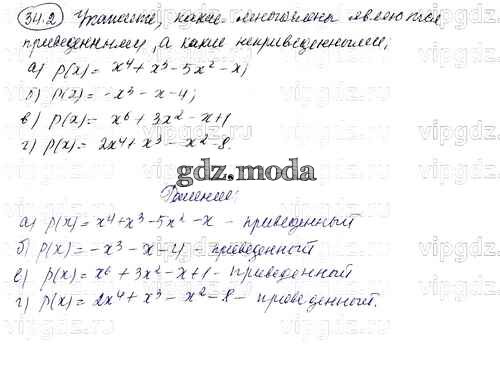 34.2 Укажите, какие многочлены являются
приведенными, а какие неприведенными;
а) p(x) = x⁴ + x³ - 5x² - x;
б) p(x) = -x³ - x - 4;
в) p(x) = x⁶ + 3x² - x + 1
г) p(x) = 2x⁴ + x³ - x² - 8.
gdz.moda
Решение;
а) p(x) = x⁴ + x³ - 5x² - x - приведенный
б) p(x) = -x³ - x - 4 - приведенной
в) p(x) = x⁶ + 3x² - x + 1 - приведенный
г) p(x) = 2x⁴ + x³ - x² - 8 - приведенной.
vipgdz.ru